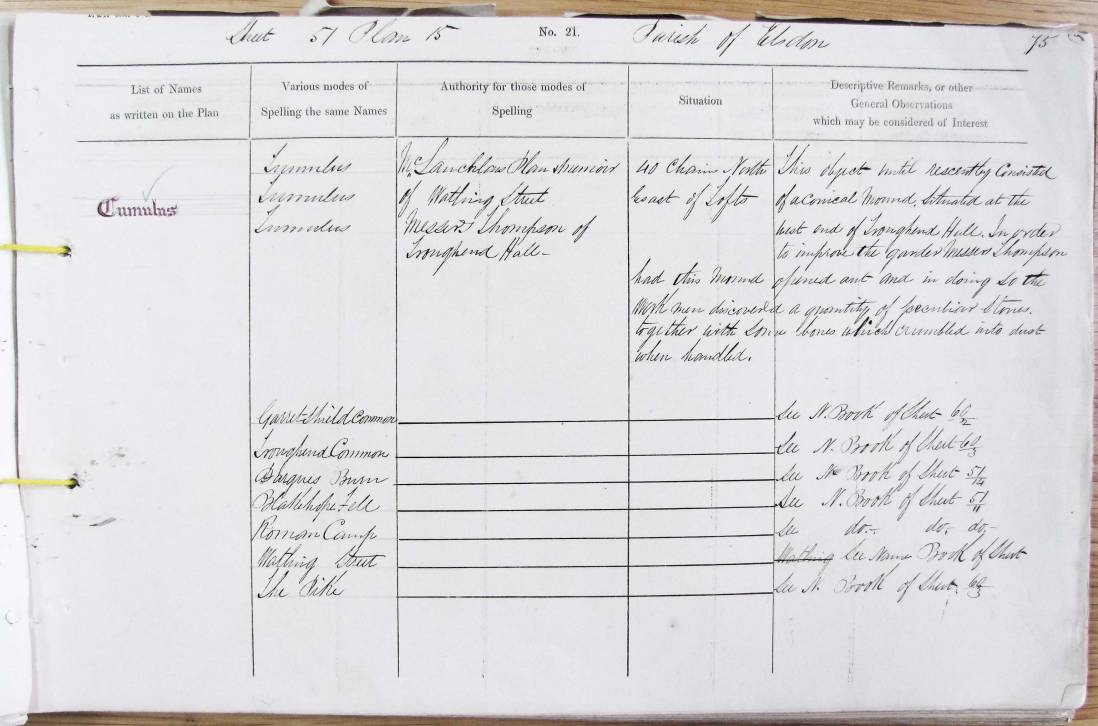 Sheet 51 Plan 15 No. 21. Parish of Elsdon 75
List of Names
as written on the Plan
Various modes of
Spelling the same Names
Authority for those modes of
Spelling
Situation
Descriptive Remarks, or other
General Observations
which may be considered of Interest
Tumulus
Tumulus
Tumulus
Tumulus
Mc Lauchlans Plan & memoir
of Watling Street
Messrs Thompson of
Troughend Hall
40 Chains North
East of Lofts
This object until rescently Consisted
of a Conical Mound, Situated at the
West end of Troughend Hall. In order
to improve the garden Messrs Thompson
had this Mound opened out and in doing so the
Work men discovered a quantity of peculiar Stones.
together with some bones which crumbled into dust
when handled.
Garret-Shield Common See N. Book of Sheet 60/2
Troughend Common See N. Book of Sheet 60/3
Dargues Burn See Ne Book of Sheet 51/14
Blakehope Fell See N. Book of Sheet 51/11
Roman Camp See do.- do. do,-
Watling Street Watling See Name Book of Sheet
The Pike See N. Book of Sheet. 60/3